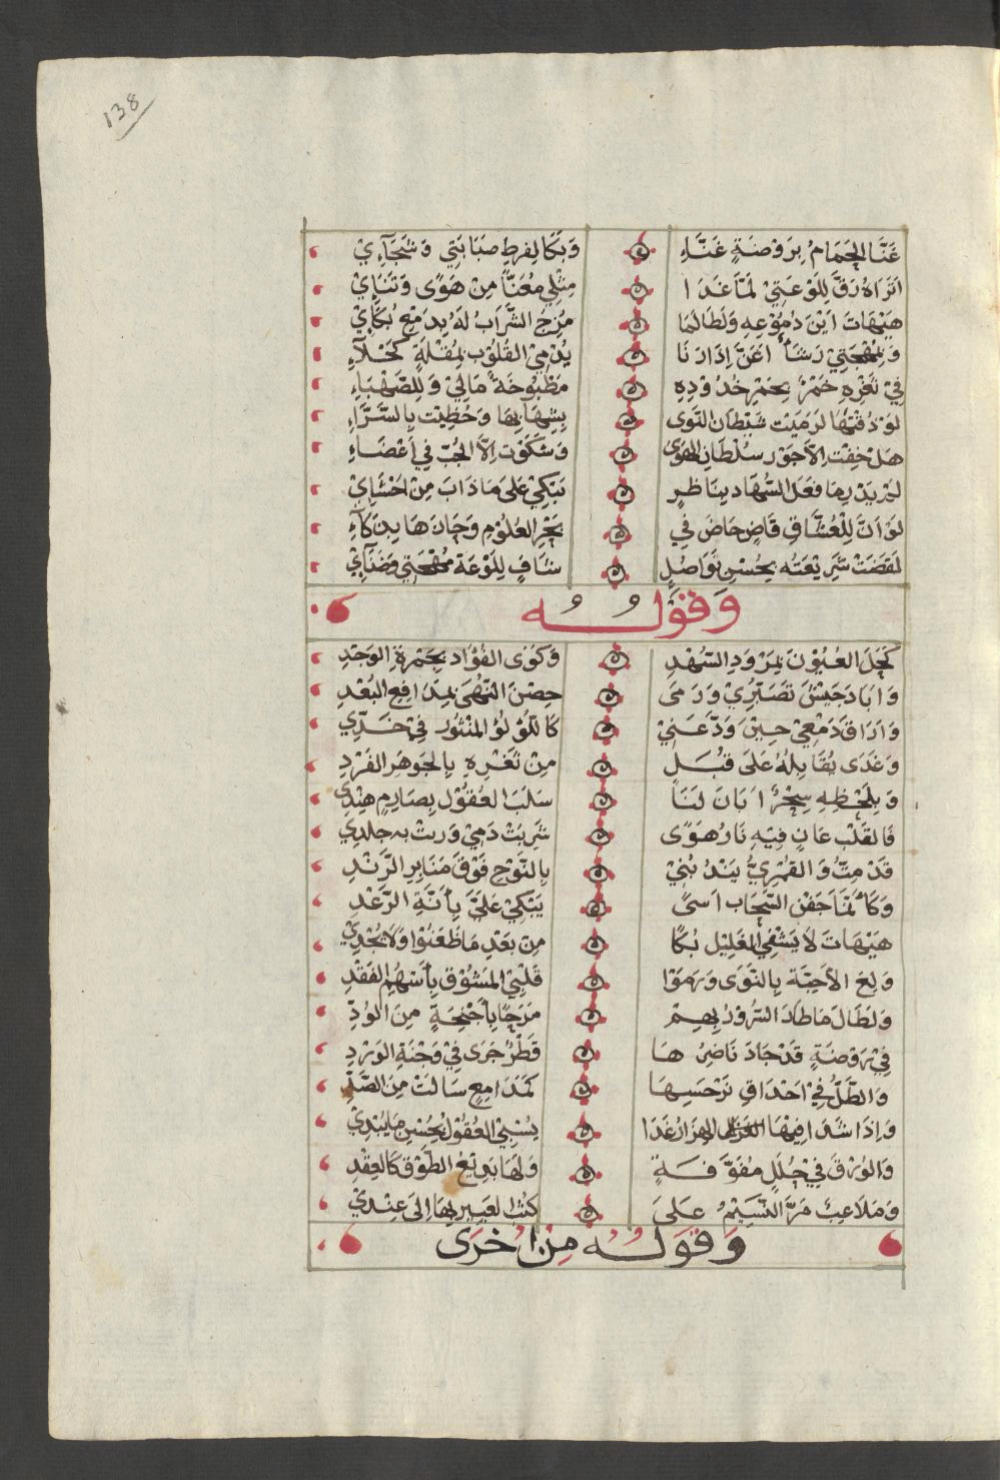 138
غَنَّا الحَمَامُ بِرَوضَةٍ غَنَّاءِ وَبَكَا لِفَرطِ صَبَابَتِي وَشَجَآءِيْ
اتَرَاهُ رَقَّ لِلَوْعَتِيْ لَمَّا غَدَا مِثْلِي مُعَنًّا مِنْ هَوًى وَتَنَاءِيْ
هَيْهَاتَ ايْنَ دُمُوْعِهِ وَلَطَالَمَا مُزِجَ الشَّرَابُ لَهُ بِدَمْعِ بُكَاءِيْ
وَبِمُهْجَتِيْ رَشَأٌ اغَنَّ اِذَا رَنَا يُدْمِيْ القُلُوْبَ بِمُقْلَةٍ كَحْلَآءِ
فِيْ ثَغْرِهِ خَمْرٌ بِجَمْرِ خُدُوْدِهِ مَطْبُوخَةٌ مَالِيْ وَلِلصَّهْبَاءِ
لَوْ ذُقْتُهَا لَرَمَيْتَ شَيْطَانَ النَّوَى بِشِهَابِهَا وَحَظِيْتَ بِالسَّرَّاءِ
هَلْ خِفْتَ اِلَّا جَوْرَ سُلْطَانِ الهَوَى وَشَكَوْتَ اِلَّا الحُبَّ فِي اَعْضَاءِ
فَعَلَ السُّهَادُ بِنَاظِرٍ تَبْكِيْ عَلَى مَا ذَابَ مِنْ احْشَاءِيْ
لَوْ اَنَّ لِلْعُشَّاقِ قَاضٍ خَاضَ فِي بَحْرِ العُلُوْمِ وَجَادَهَا بِذَكَآءِ
لَقَضَتْ شَرِيْعَتُه بِحُسْنِ تَوَاصُلٍ شَافٍ لِلَوْعَةِ مُهْجَتِيْ وَضَنَآءِيْ
وَقَوْلُـــه
كَحَلَ العُيُوْنَ بِمِرْوَدِ السُّهْدِ وَكَوَى الفُؤَادَ بِجَمْرَةِ الوَجْدِ
وَابَادَ جَيْشَ تَصَبُّرِيْ وَرَمَى حِصْنَ النُّهَى بِمَدَافِعِ البُعْدِ
وَارَاقَ دَمْعِيْ حِيْنَ وَدَّعَنِيْ كَاللُّؤْلُؤِ المَنْثُوْرِ فِيْ خَدِّي
وَغَدَى يُقَابِلُهُ عَلَى قُبَلٍ مِنْ ثَغْرِهِ بِالجَوْهَرِ الفَرْدِ
وَبِلَحْظِهِ سِحْرٌ ابَانَ لَنَا سَلَبَ العُقُوْلَ بِصَارِمٍ هِنْدِي
فَالقَلْبُ عَانٍ فِيْهِ نَارُ هَوًى شَرِبَتْ دَمِيْ وَرَثَتْ بِه جِلْدِي
قَدْ مِتُّ وَالقُمْرِيُّ يَنْدُبُنِيْ بِالنَّوْحِ فَوْقَ مَنَابِرِ الرَّنْدِ
وَكَأَنَّمَا جَفْنُ السَّحَابِ اسىً يَبْكِيْ عَلَيَّ بِأَنَّةِ الرَّعْدِ
هَيْهَاتَ لَا يَشْفِي الغَلِيْلَ بُكًا مِنْ بَعْدِ مَا ظَعَنُوْا وَلَا يُجْدِيْ
وَلِعَ الأَحِبَّةُ بِالنَّوَى وَرَمَوْا قَلْبِيْ المَشُوْقَ بِأَسْهُمِ الفَقْدِ
وَلَطَالَ مَا طَارَ السُّرُوْرُ بِهِمْ مَرَحًا بِأَجْنِحَةٍ مِنَ الوُدِّ
فِيْ رَوْضَةٍ قَدْ جَادَ نَاضِرُهَا قَطْرٌ جَرَى فِيْ وَجْنَةِ الوَرْدِ
وَالطَّلُّ فِيْ احْدَاقِ نَرْجَسِهَا كَمَدَامِعٍ سَالَتْ مِنَ الصَّدِّ
وَاِذَا شَدَا فِيْهَا الهَزَارُ غَدَا يَسْبِيْ العُقُوْلَ بِحُسْنِ مَا يُبْدِيْ
وَالوُرْقَ فِيْ حُلَلٍ مُفَوَّفَةٍ وَلَهَا بَدِيْعُ الطَّوْقِ كَالعِقْدِ
وَمَلَاعِبٌ مَرَّ النَّسِيْمُ عَلَى العَبِيْرِ بِهَا اِلَى عِنْدِيْ
وَقَوْلُـــه مِنْ اُخْرَى